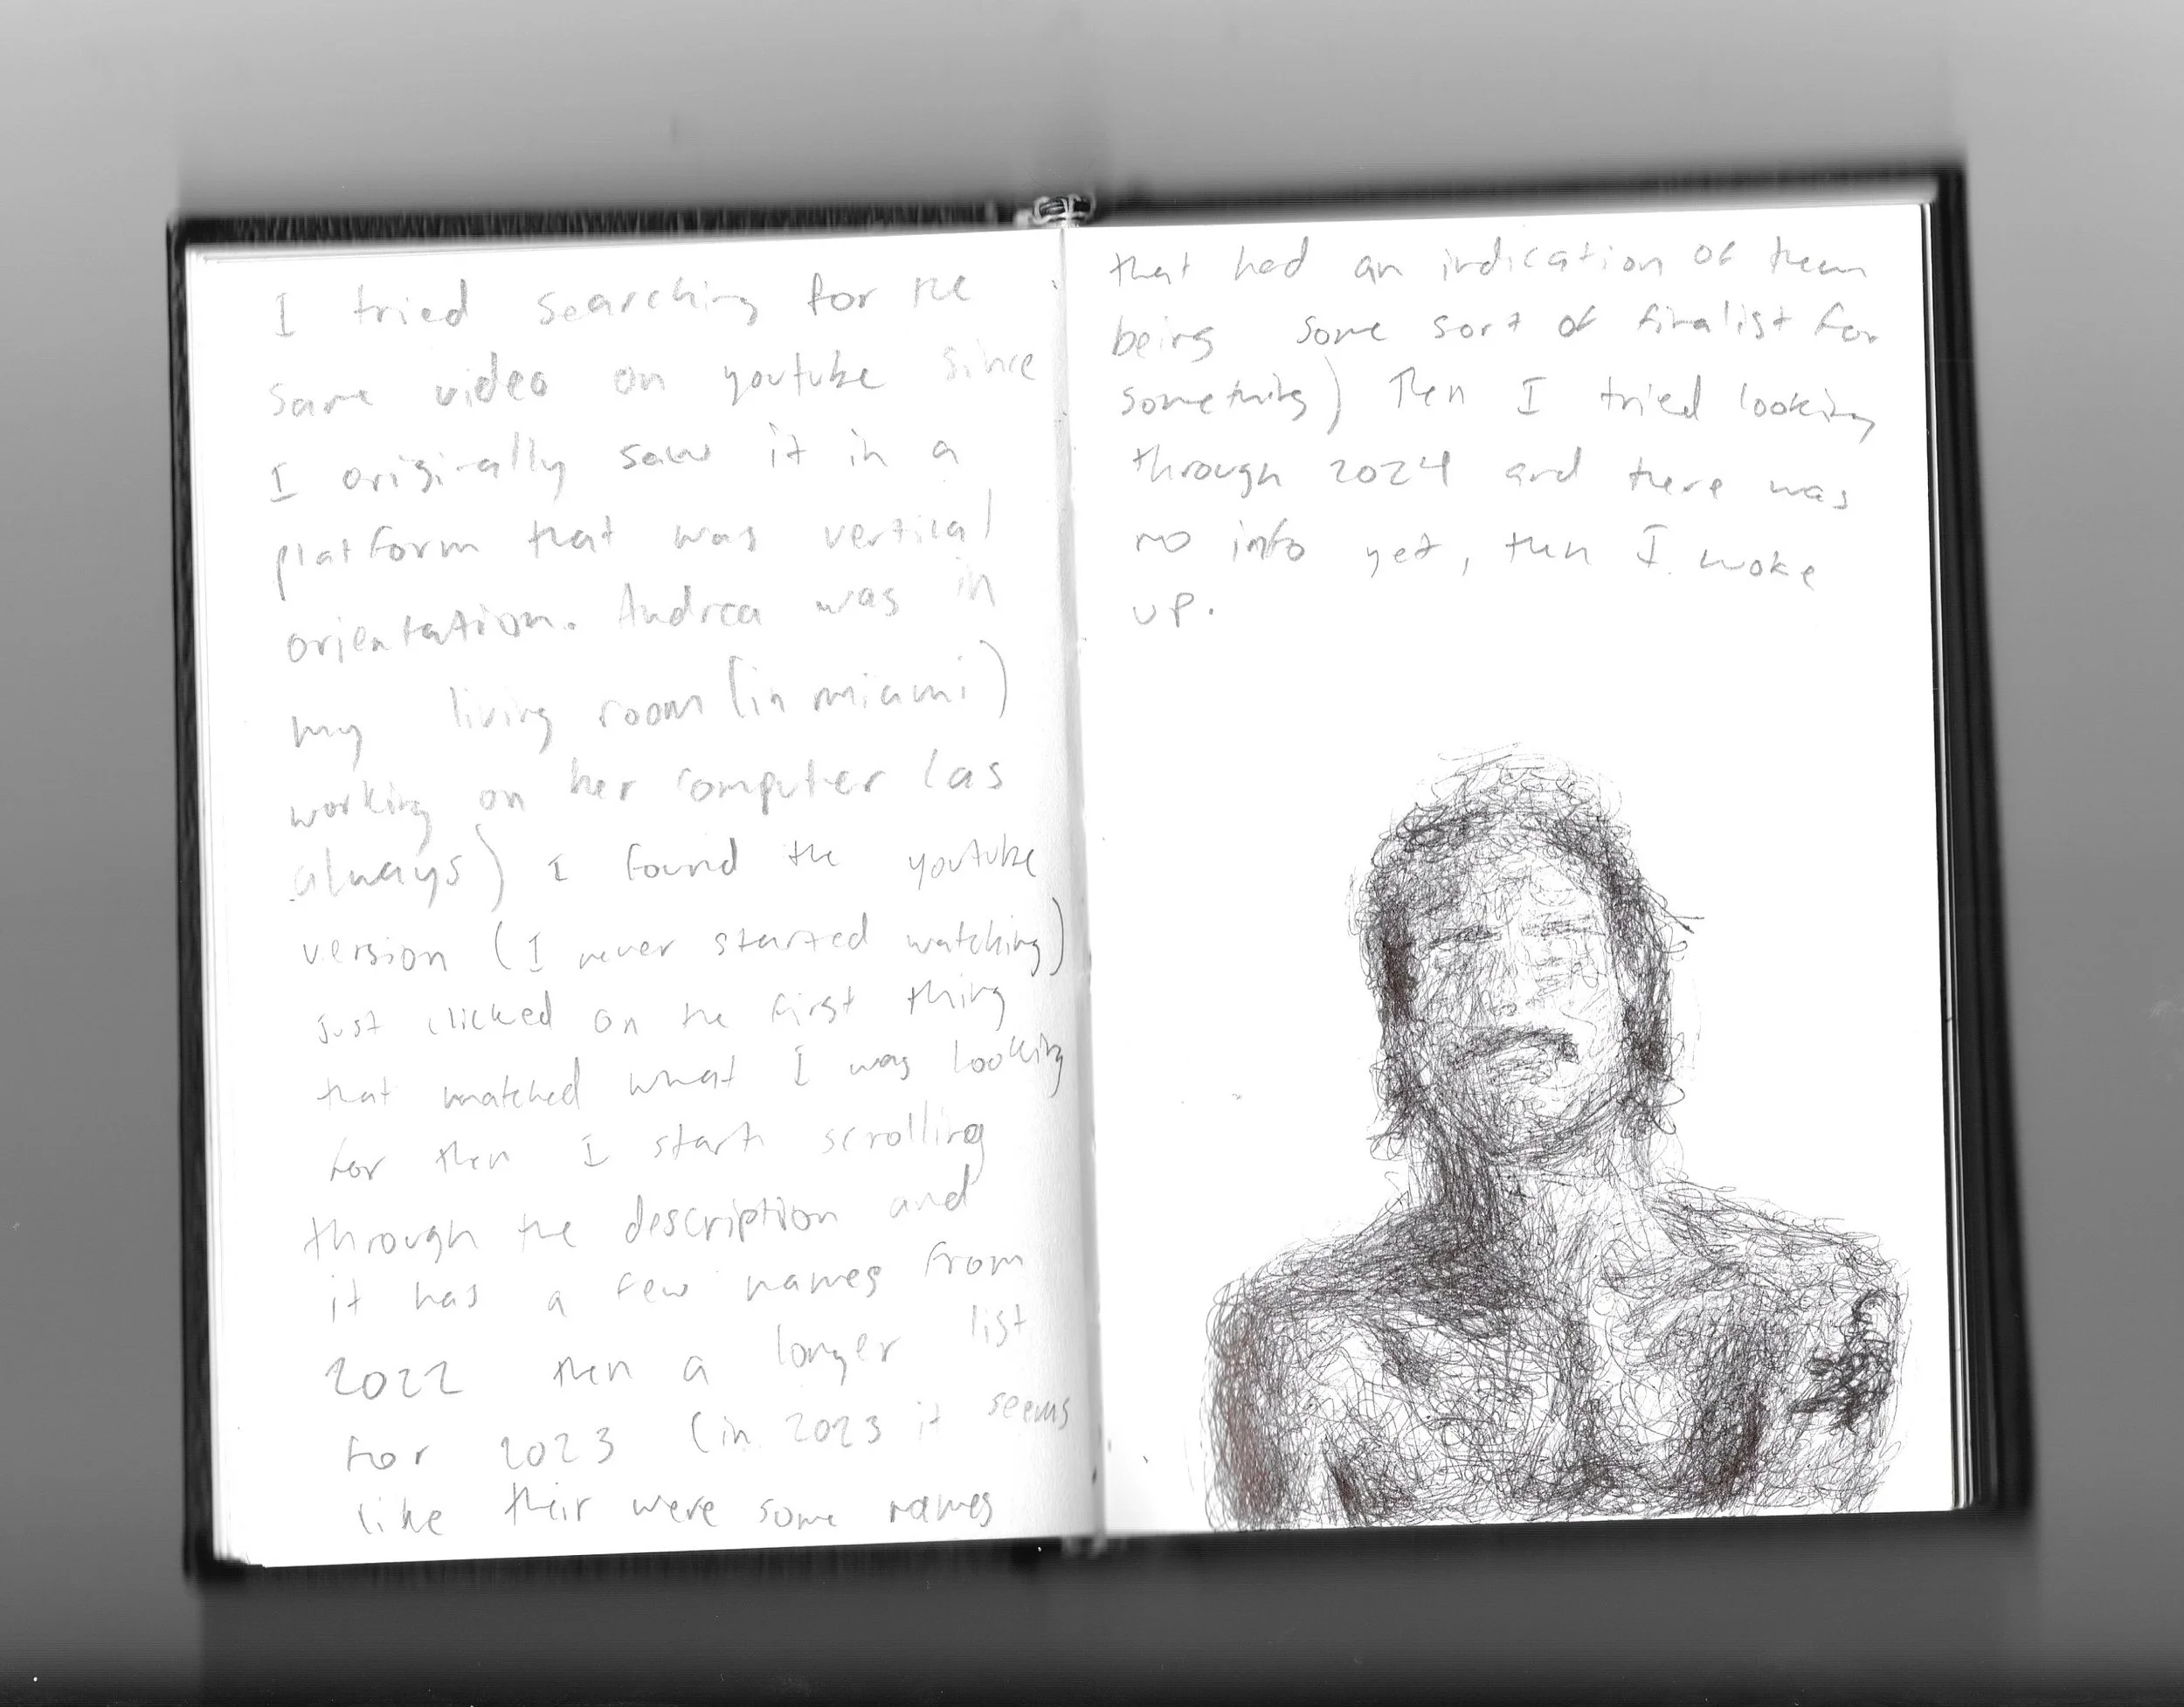 I tried searching for the
same video on youtube since
I originally saw it in a
platform that was vertical
orientation. Andrea was in
my living room (in miami)
working on her computer (as
always) I found the youtube
version (I never started watching)
just clicked on the first thing
that matched what I was looking
for then I start scrolling
through the description and
it has a few names from
2022 then a longer list
for 2023 (in 2023 it seems
like their were some names
that had an indication of them
being some sort of finalist for
something) Then I tried looking
through 2024 and there was
no info yet, then I woke
up.